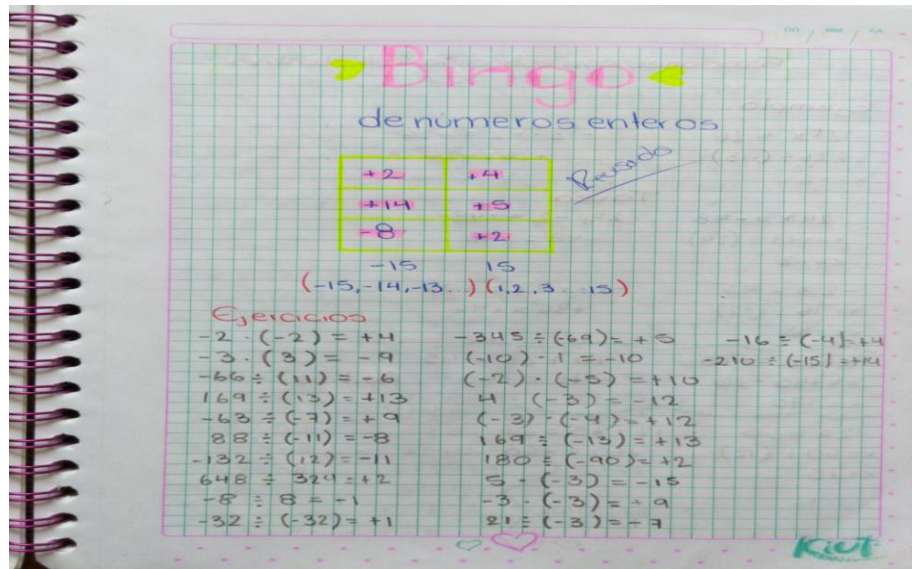 DD / MM / AA
Bingo
de números enteros
+2 +4
+14 +5
-8 +2
Revisado
-15 15
(-15, -14, -13...) (1, 2, 3... 15)
Ejercicios
-2 · (-2) = +4
-3 · (3) = -9
-66 ÷ (11) = -6
169 ÷ (13) = +13
-63 ÷ (-7) = +9
88 ÷ (-11) = -8
-132 ÷ (12) = -11
648 ÷ 324 = +2
-8 ÷ 8 = -1
-32 ÷ (-32) = +1
-345 ÷ (-69) = +5
(-10) · 1 = -10
(-2) · (-5) = +10
4 (-3) = -12
(-3) · (-4) = +12
169 ÷ (-13) = +13
180 ÷ (-90) = +2
5 · (-3) = -15
-3 · (-3) = +9
21 ÷ (-3) = -7
-16 ÷ (-4) = +4
-210 ÷ (-15) = +14
Kiut